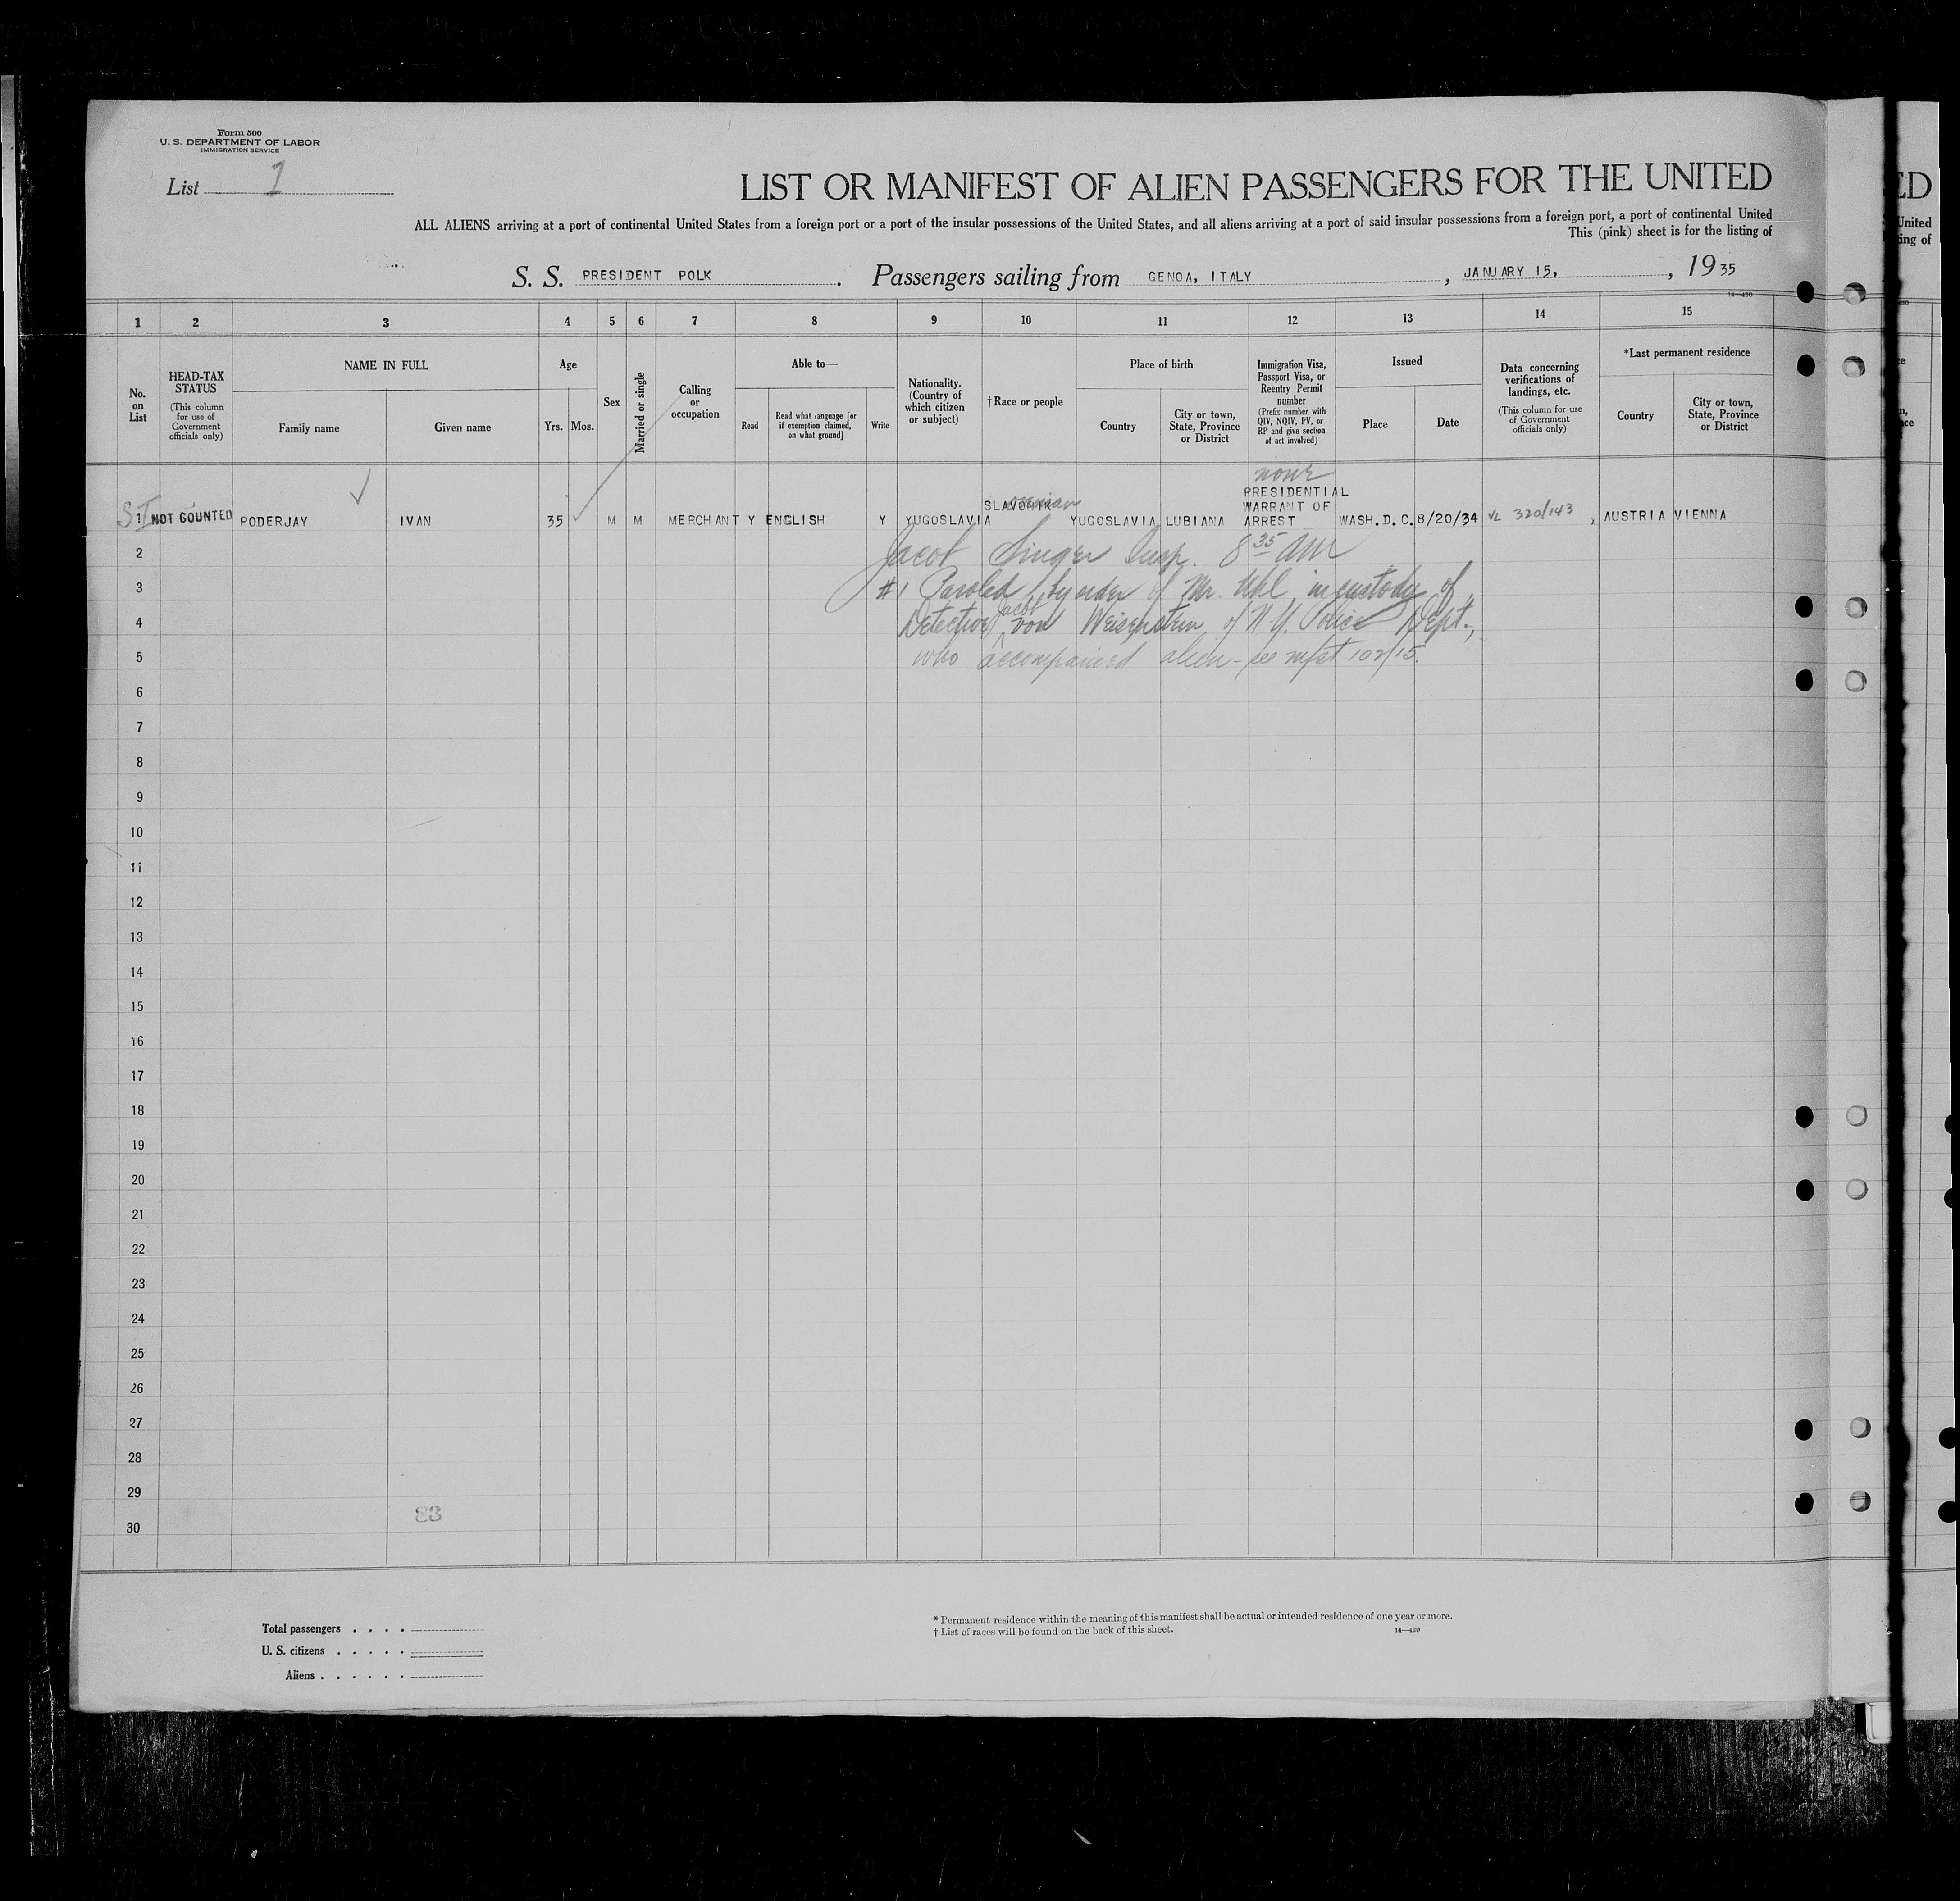 Form 500
U. S. DEPARTMENT OF LABOR
IMMIGRATION SERVICE
List 1
LIST OR MANIFEST OF ALIEN PASSENGERS FOR THE UNITED
ALL ALIENS arriving at a port of continental United States from a foreign port or a port of the insular possessions of the United States, and all aliens arriving at a port of said insular possessions from a foreign port, a port of continental United
This (pink) sheet is for the listing of
S. S. PRESIDENT POLK. Passengers sailing from GENOA, ITALY, JANUARY 15, , 19 35
14—430
1 2 3 4 5 6 7 8 9 10 11 12 13 14 15
No. on List
HEAD-TAX STATUS
(This column for use of Government officials only)
NAME IN FULL
Family name
Given name
Age
Yrs. Mos.
Sex
Married or single
Calling or occupation
Able to—
Read
Read what language [or if exemption claimed, on what ground]
Write
Nationality. (Country of which citizen or subject)
†Race or people
Place of birth
Country
City or town, State, Province or District
Immigration Visa, Passport Visa, or Reentry Permit number
(Prefix number with QIV, NQIV, PV, or RP and give section of act involved)
Issued
Place
Date
Data concerning verifications of landings, etc.
(This column for use of Government officials only)
*Last permanent residence
Country
City or town, State, Province or District
none
PRESIDENTIAL
WARRANT OF
SI 1 NOT COUNTED PODERJAY IVAN 35 M M MERCHANT Y ENGLISH Y YUGOSLAVIA YUGOSLAVIA LUBIANA ARREST WASH. D. C. 8/20/34 VL 320/143 x AUSTRIA VIENNA
2 Jacob Singer Insp. 8 35 AM
3 #1 Paroled by order of Mr. Uhl, in custody of
4 Detective Jacob von Weisenstein of N.Y. Police Dept.,
5 who accompanied alien - see mfst 102/15.
6
7
8
9
10
11
12
13
14
15
16
17
18
19
20
21
22
23
24
25
26
27
28
29
30
83
Total passengers
U. S. citizens
Aliens
* Permanent residence within the meaning of this manifest shall be actual or intended residence of one year or more.
† List of races will be found on the back of this sheet.
14—430
ED
United
ing of